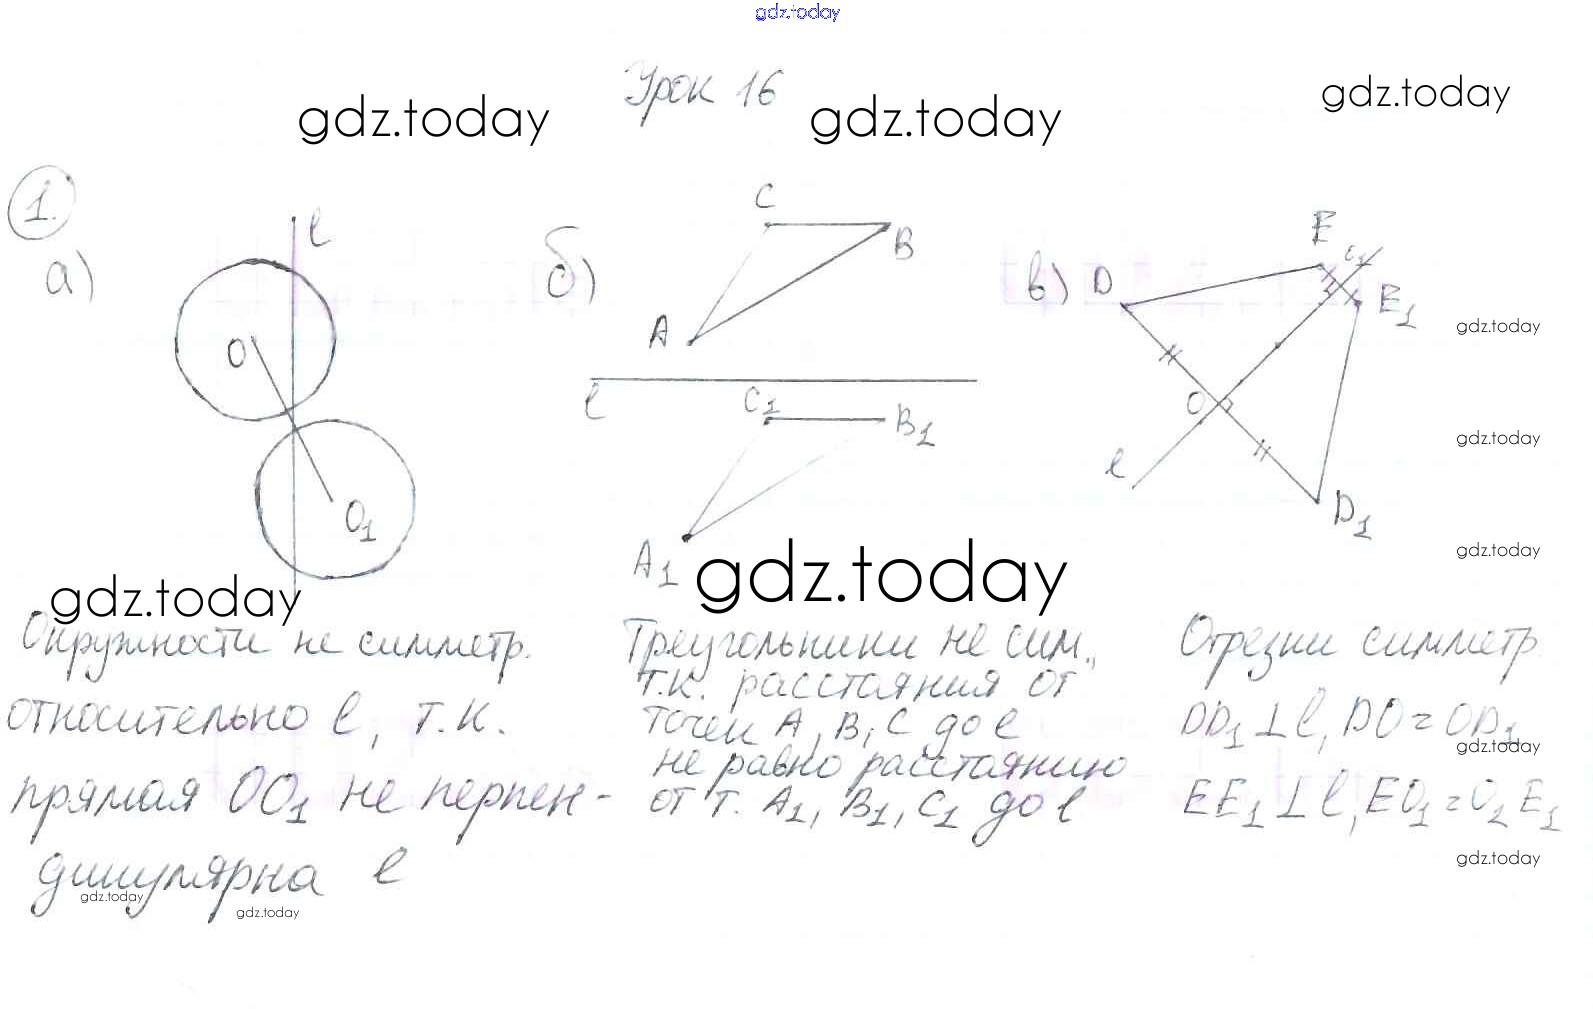 gdz.today
Урок 16
gdz.today
gdz.today
gdz.today
1.
а)
l
O
O1
б)
C
B
A
l
C1
B1
A1
в)
D
E
E1
O
l
D1
gdz.today
gdz.today
gdz.today
gdz.today
gdz.today
Окружности не симметр.
относительно l, т.к.
прямая OO1 не перпен-
дикулярна l
gdz.today
gdz.today
Треугольники не сим.,
т.к. расстояния от
точек A, B, C до l
не равно расстоянию
от т. A1, B1, C1 до l
Отрезки симметр.
DD1 ⊥ l, DO = OD1
gdz.today
EE1 ⊥ l, EO1 = O2E1
gdz.today